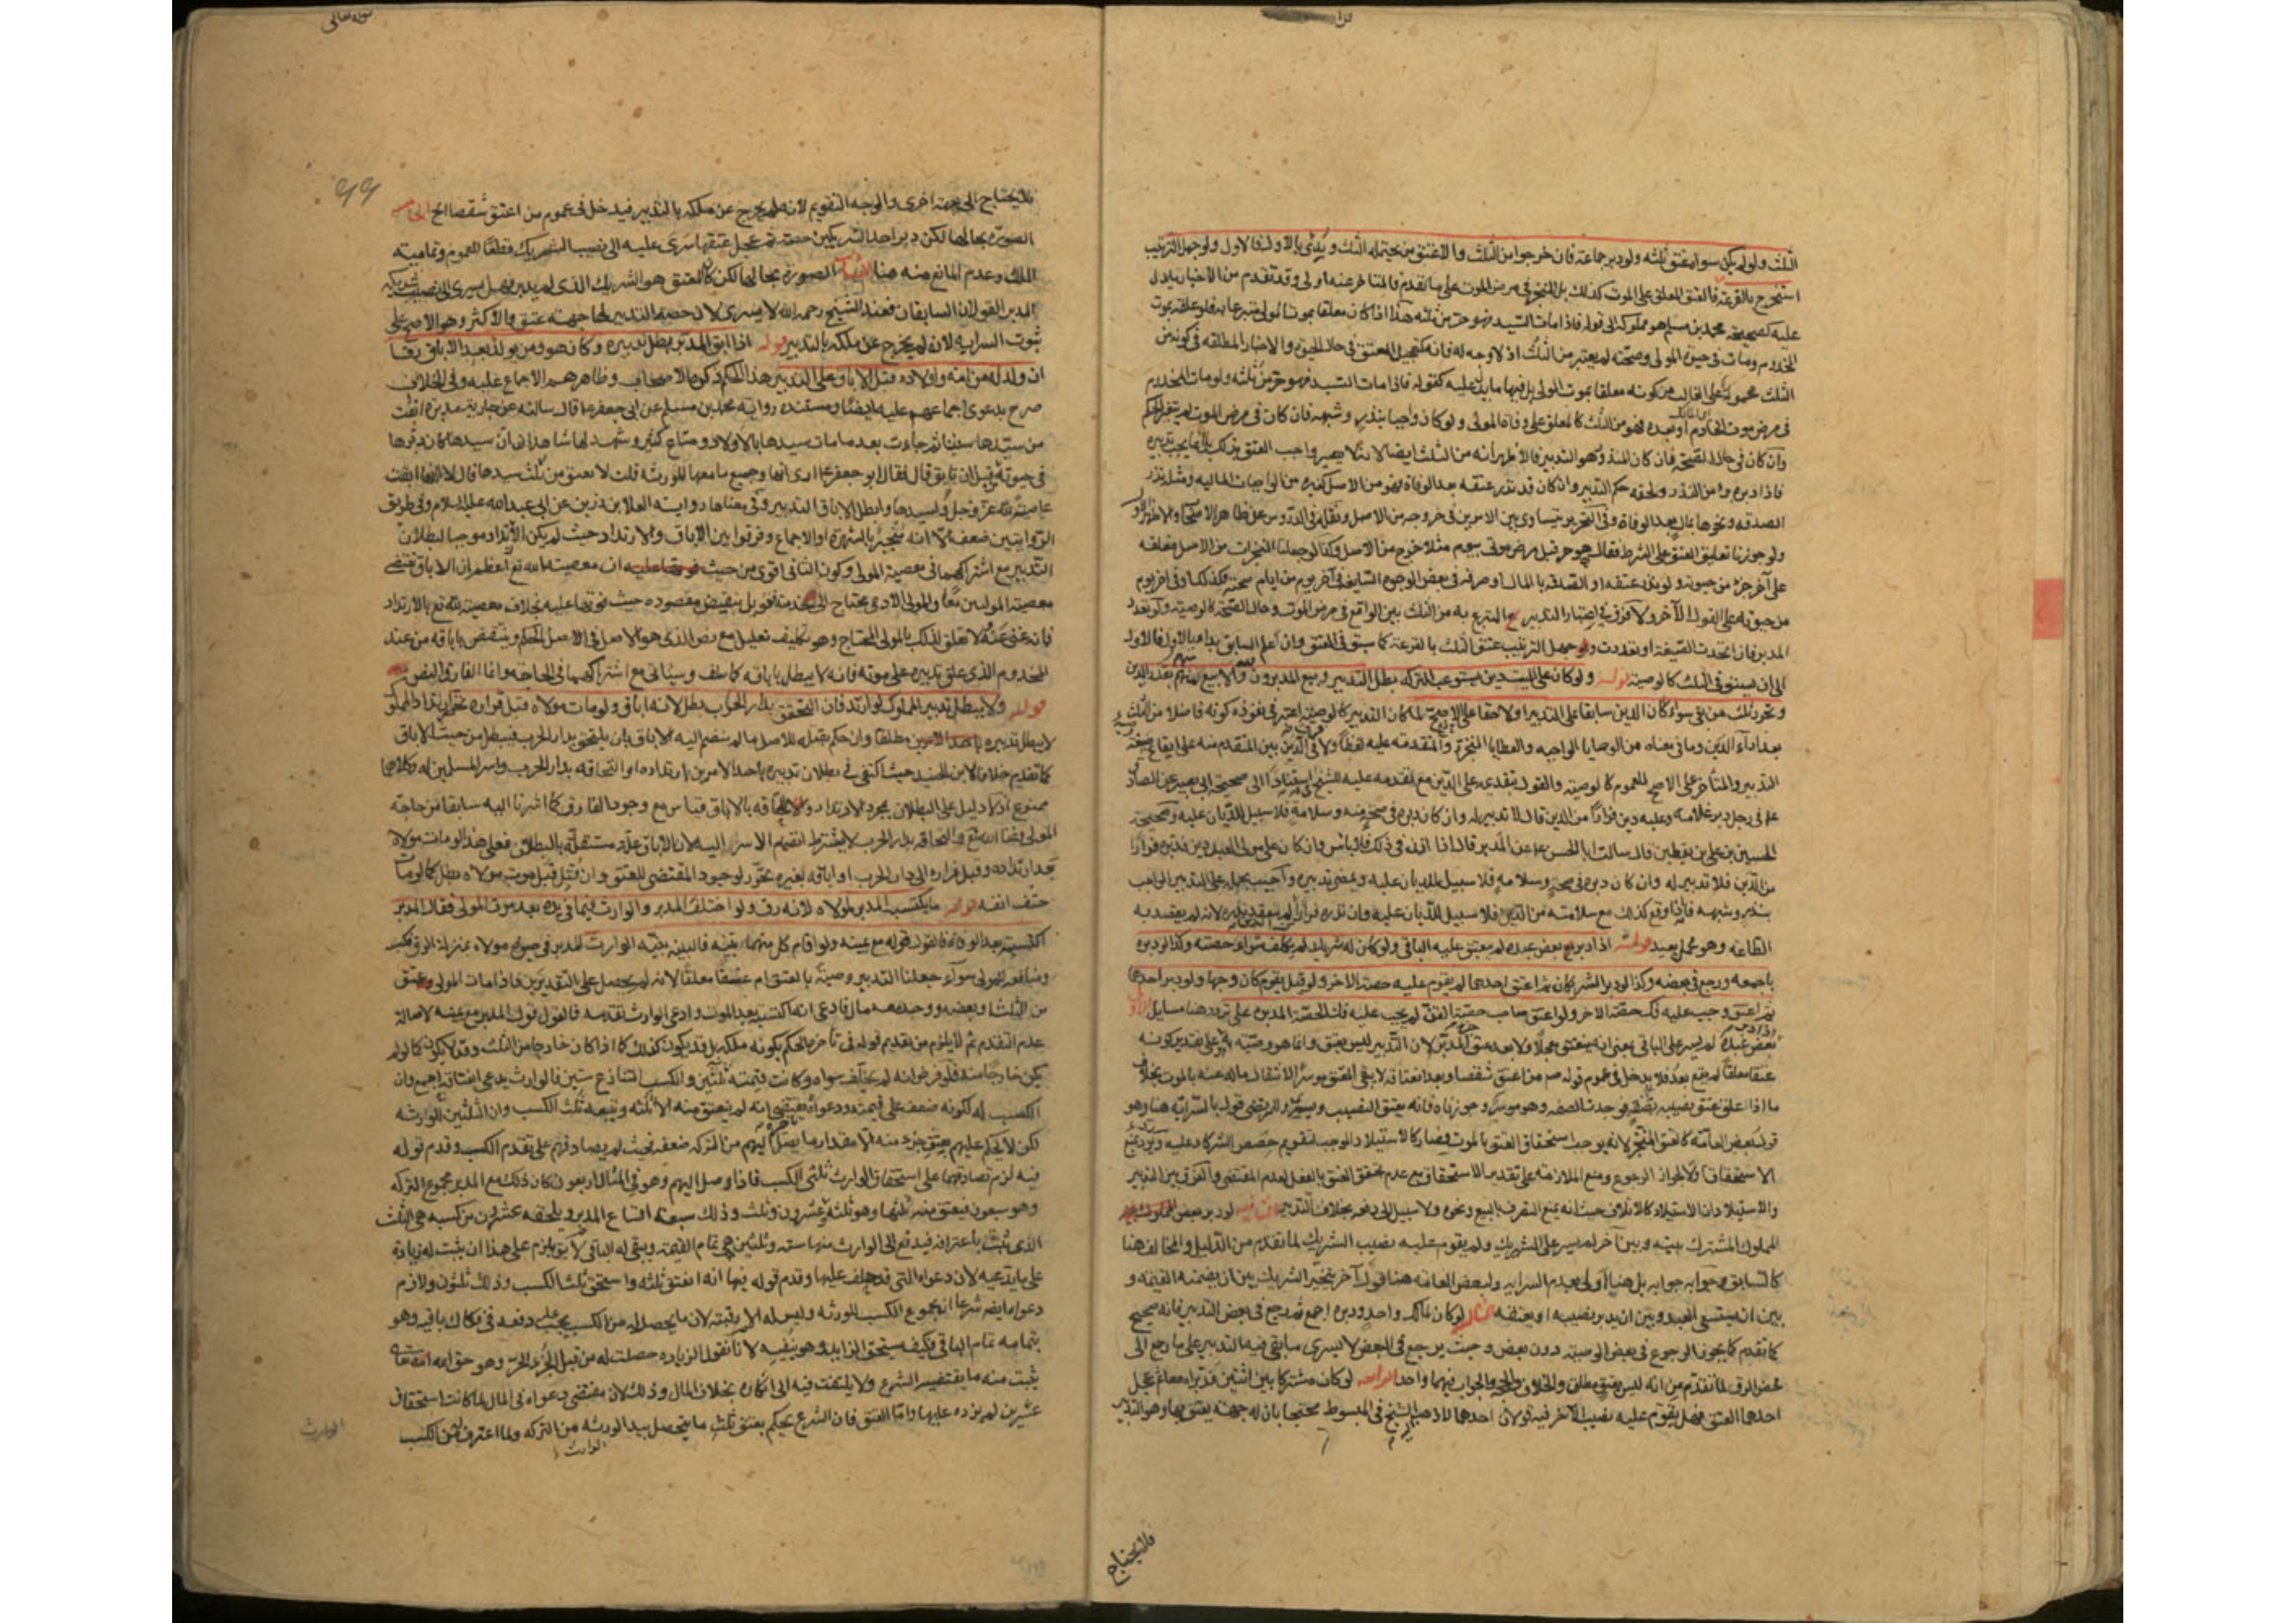 الثلث ولو لم يكن سواه عتق ثلثه ولو دبر جماعة فان خرجوا من الثلث والا عتق من يحتمله الثلث ويُبدَئ بالاول فالاول ولو جهل الترتيب
استخرج بالقرعة فالعتق المعلق على الموت كذلك بل المنجز في مرض الموت على ما تقدم فالمتاخر عنه اولى وقد تقدم من الاخبار ما يدل
عليه كصحيحة محمد بن مسلم هو مملوكه الى قوله فاذا مات السيد فهو حر من ثلثه هذا اذا كان معلقا بموت المولى متبرعا به فلو علقه بموت
المخدوم ومات في حيوة المولى وصحته لم يعتبر من الثلث اذ لا وجه له فانه كتعجيل المعتق في حال الحيوة والاخبار المطلقة في كونه من
الثلث محمولة على الغالب من كونه معلقا بموت المولى بل فيها ما يدل عليه كقوله فاذا مات السيد فهو حر من ثلثه ولو مات المخدوم
في مرض موت المولى او بعده فهو من الثلث كالمعلق على وفاة المولى ولو كان واجبا بنذر وشبهه فان كان في مرض الموت لم يتغير الحكم
وان كان في حال الصحة فان كان المنذور هو التدبير فالاظهر انه من الثلث ايضا لانه لا يصير واجب العتق بذلك بل انما يجب تدبيره
فاذا دبره برئ من النذر ولحقه حكم التدبير وان كان قد نذر عتقه بعد الوفاة فهو من الاصل كغيره من الواجبات المالية ومثله نذر
الصدقة ونحوها بمال بعد الوفاة وفي التحرير تساوى بين الامرين في خروجه من الاصل ونقله في الدروس عن ظاهر الاصحاب والاظهر الاول
ولو جوزنا تعليق العتق على الشرط فقال هو حر قبل مرض موتي بيوم مثلا خرج من الاصل وكذا لو جعلنا المنجزات من الاصل فعلقه
على آخر جزء من حيوته ولو نذر عتقه او الصدقة بالمال او صرفه في بعض الوجوه السايغة في آخر يوم من ايام صحته فكذلك او في آخر يوم
من حيوته على القول الآخر ولا فرق في اعتبار التدبير المتبرع به من الثلث بين الواقع في مرض الموت وحال الصحة كالوصية ولو تعدد
المدبر فان اتحدت الصيغة او تعددت وجهل الترتيب عتق الثلث بالقرعة كما سبق في العتق وان علم السابق بدأ به بالاول فالاول
الى ان يستوفى الثلث كالوصية قوله ولو كان على الميت دين يستوعب التركة بطل التدبير وبيع المدبرون والا بيع منهم بقدر الدين
وتحرر ثلث من بقي سواء كان الدين سابقا على التدبير او لاحقا على الاصح لما كان التدبير كالوصية اعتبر في نفوذه كونه فاضلا من الثلث
بعد اداء الدين وما في معناه من الوصايا الواجبة والعطايا المنجزة والمتقدمة عليه لفظا ولا فرق في الدين بين المتقدم منه على ايقاع صيغة
التدبير والمتأخر على الاصح للعموم كالوصية والقول بتقديمه على الدين مع تقدمه عليه للشيخ استنادا الى صحيحة ابي بصير عن الصادق
ع في رجل دبر غلامه وعليه دين فرارا من الدين قال لا تدبير له وان كان دبره في صحة منه وسلامة فلا سبيل للديان عليه وصحيحة
الحسين بن علي بن يقطين قال سالت ابا الحسن ع عن المدبر قال اذا اذن في ذلك فلا باس وان كان على مولى العبد دين فدبره فرارا
من الدين فلا تدبير له وان كان دبره في صحة وسلامة فلا سبيل للديان عليه ويمضى تدبيره واجيب بحمله على التدبير الواجب
بنذر وشبهه فاذا وقع كذلك مع سلامته من الدين فلا سبيل للديان عليه وان نذره فرارا لم ينعقد نذره لانه لم يقصد به
الطاعة وهو محمل بعيد قوله اذا دبر بعض عبده لم يعتق عليه الباقي ولو كان له شريك لم يكلف شراء حصته وكذا لو دبره
باجمعه ورجع في بعضه وكذا لو دبر الشريكان ثم اعتق احدهما لم يقوم عليه حصة الاخر ولو قيل يقوم كان وجها ولو دبر احدهما
ثم اعتق وجب عليه فك حصة الاخر ولو اعتق صاحب حصة القن لم يجب عليه فك الحصة المدبرة على تردد هنا مسايل الاولى اذا دبر
بعض عبده لم يسر على الباقي بمعنى انه ينعتق معجلا ولا بعد عتق المدبر لان التدبير ليس بعتق وانما هو وصية به وعلى تقدير كونه
عتقا معلقا لم يقع بعد فلا يدخل في عموم قوله ص من اعتق شقصا وبعد انعتاقه لا يبقى المعتق موسرا لانتقال ماله عنه بالموت بخلاف
ما اذا علق عتق نصيبه بصفة فوجدت الصفة وهو موسر وجوزناه فانه يعتق النصيب ويسرى وللمرتضى قول بالسراية هنا وهو
قول بعض العامة كالعتق المنجز لانه يوجب استحقاق العتق بالموت فصار كالاستيلاد الموجب لتقويم حصص الشركاء عليه ويرد بمنع
الاستحقاق اولا لجواز الرجوع ومنع الملازمة على تقدير الاستحقاق مع عدم تحقق العتق بالفعل لعدم المقتضى والفرق بين التدبير
والاستيلاد ان الاستيلاد كالاتلاف حيث انه يمنع التصرف بالبيع ونحوه ولا سبيل الى دفعه بخلاف التدبير الثانية لو دبر بعض المملوك
المملوك المشترك بينه وبين آخر لم يسر على الشريك ولم يقوم عليه نصيب الشريك لما تقدم من الدليل والمخالف هنا
كالسابق وجوابه جوابه بل هنا اولى بعدم السراية ولبعض العامة هنا قول آخر بتخير الشريك بين ان يضمنه القيمة و
بين ان يستسعى العبد وبين ان يدبر نصيبه او يعتقه الثالثة لو كان لمالك واحد ودبره اجمع ثم رجع في بعض التدبير فانه صحيح
كما تقدم كما يجوز الرجوع في بعض الوصية دون بعض وحيث يرجع في البعض لا يسرى ما بقى فيه التدبير على ما رجع الى
محض الرق لما تقدم من انه ليس بعتق مطلق والخلاف والحجة والجواب فيهما واحد الرابعة لو كان مشتركا بين اثنين فدبراه معا ثم عجل
احدهما العتق فهل يقوم عليه نصيب الآخر فيه قولان احدهما لا ذهب اليه الشيخ في المبسوط محتجا بان له جهة يعتق بها وهو التدبير
فلا يحتاج
فلا يحتاج الى جهة اخرى والوجه التقويم لانه لم يخرج عن ملكه بالتدبير فيدخل في عموم من اعتق شقصا الخ الخامسة
الصورة بحالها لكن دبر احد الشريكين حصته ثم عجل عتقها سرى عليه الى نصيب الشريك قطعا للعموم وتمامية
الملك وعدم المانع منه هنا السادسة الصورة بحالها لكن كان المعتق هو الشريك الذي لم يدبر فهل يسرى الى نصيب شريكه
المدبر القولان السابقان فعند الشيخ رحمه الله لا يسرى لان حصة التدبير لها جهة عتق والاكثر وهو الاصح على
ثبوت السراية لانه لم يخرج عن ملكه بالتدبير قوله اذا ابق المدبر بطل تدبيره وكان هو ومن يولد بعد الاباق رقا
ان ولد له من امة واولاده قبل الاباق على التدبير هذا الحكم ذكره الاصحاب وظاهرهم الاجماع عليه وفي الخلاف
صرح بدعوى اجماعهم عليه ايضا ومستنده رواية محمد بن مسلم عن ابي جعفر ع قال سالته عن جارية مدبرة ابقت
من سيدها سنينا ثم جاءت بعد ما مات سيدها باولاد ومتاع كثير وشهد لها شاهدان ان سيدها كان دبرها
في حيوته قبل ان تابق قال فقال ابو جعفر ع ارى انها وجميع ما معها للورثة قلت لا تعتق من ثلث سيدها قال لا انها ابقت
عاصية لله عز وجل ولسيدها وابطل الاباق التدبير وفي معناها رواية العلا بن رزين عن ابي عبد الله عليه السلام وفي طريق
الروايتين ضعف الا انه منجبر بالشهرة او الاجماع وفرقوا بين الاباق والارتداد حيث لم يكن الارتداد موجبا لبطلان
التدبير مع اشتراكهما في معصية المولى وكون الثاني اقوى من حيث ان معصية الله تع اعظم ان الاباق تقتضى
معصية الموليين معا والمولى الآدمي محتاج الى خدمته فقوبل بنقيض مقصوده حيث فوتها عليه بخلاف معصية الله تع بالارتداد
فانه غنى عنه لا تعلق لذلك بالمولى المحتاج وهو تكليف تعليل مع رض الذي هو الاصل في الاصل المحكم وينتقض باباقه من عند
المخدوم الذي علق تدبيره على موته فانه لا يبطل باباقه كما سلف وسياتي مع اشتراكهما في الحاجة وانما الفارق النص
قوله ولا يبطل تدبير المملوك لو ارتد فان التحق بدار الحرب بطل لانه اباق ولو مات مولاه قبل فراره تحرر ارتداد المملوك
لا يبطل تدبيره مطلقا وان حكم بقتله للاصل ما لم ينضم اليه الاباق بان يلتحق بدار الحرب فيبطل من حيث الاباق
كما تقدم خلافا لابن الجنيد حيث اكتفى في بطلان تدبيره باحد الامرين ارتداده او التحاقه بدار الحرب واسر المسلمين له وكلاهما
ممنوع اذ لا دليل على البطلان بمجرد الارتداد والحاقه بالاباق قياس مع وجود الفارق كما اشرنا اليه سابقا من حاجة
المولى وغنا الله تع والتحاقه بدار الحرب لا يشترط انضمام الاسر اليه لان الاباق علة مستقلة بالبطلان فعلى هذا لو مات مولاه
بعد ارتداده وقبل فراره الى دار الحرب او اباقه بغيره تحرر لوجود المقتضى للعتق وان قتل قبل موت مولاه بطل كما لو مات
حتف انفه قوله ما يكتسبه المدبر لمولاه لانه رق ولو اختلف المدبر والوارث فيما في يده بعد موت المولى فقال المدبر
اكتسبته بعد الوفاة فالقول قوله مع يمينه ولو اقام كل منهما بينة فالبينة بينة الوارث المدبر في حيوة مولاه بمنزلة الرق فكسبه
ومنافعه للمولى سواء جعلنا التدبير وصية بالعتق ام عتقا معلقا لانه لم يحصل على التقديرين فاذا مات المولى وعتق
من الثلث او بعضه ووجد معه مال فادعى انه اكتسبه بعد الموت وادعى الوارث تقدمه فالقول قول المدبر مع يمينه لاصالة
عدم التقدم ثم لا يلزم من تقديم قوله في تأخره الحكم بكونه ملكه بل قد يكون كذلك كما اذا كان خارجا من الثلث وقد لا يكون كما لو لم
يكن خارجا منه فلو فرض انه لم يخلف سواه وكانت قيمته ثلثين والكسب المتنازع ستين فالوارث يدعى اعتاقه اجمع وان
الكسب له لكونه ضعف على قيمته ودعواه تقتضى انه لم ينعتق منه الا ثلثه ويتبعه ثلث الكسب وان الثلثين للورثة
لكن لا يحكم عليهم بعتق جزء منه الا مقدار ما يصل اليهم من التركة ضعفه فحيث لم يصادقهم على تقدم الكسب وقدم قوله
فيه لزم تصادقهما على استحقاق الوارث ثلثى الكسب فاذا وصل اليهم وهو في المثال اربعون كان ذلك مع المدبر مجموع التركة
وهو سبعون فيعتق منه ثلثها وهو ثلثة وعشرون وثلث وذلك سبعة اتساع المدبر ويلحقه عشرون من كسبه هي الثلث
الذي ثبت باعترافه فيدفع الى الوارث منها ستة وثلثين هي تمام القيمة ويبقى له الباقي لا يق يلزم على هذا ان يثبت له زيادة
على ما يدعيه لان دعواه التي قد حلف عليها وقدم قوله فيها انه انعتق ثلثه واستحق ثلث الكسب وذلك ثلثون ولازم
دعواه ايضه شرعا ان مجموع الكسب للورثة وليس له الا رقبته لان ما يحصل له من الكسب يجب عليه دفعه في فكاك باقيه وهو
بتمامه تمام الباقي فكيف يستحق الزايد وهو ينفيه لانا نقول الزيادة حصلت له من قبل الجزء الحر وهو حق لله تعالى
يثبت منه ما يقتضيه الشرع ولا يلتفت فيه الى انكاره بخلاف المال وذلك لان مقتضى دعواه في المال لما كانت استحقاق
عشرين لم يزده عليها واما العتق فان الشرع يحكم بعتق ثلث ما يحصل بيد الورثة من التركة ولما اعترف الوارث بثمن الكسب
الوارث